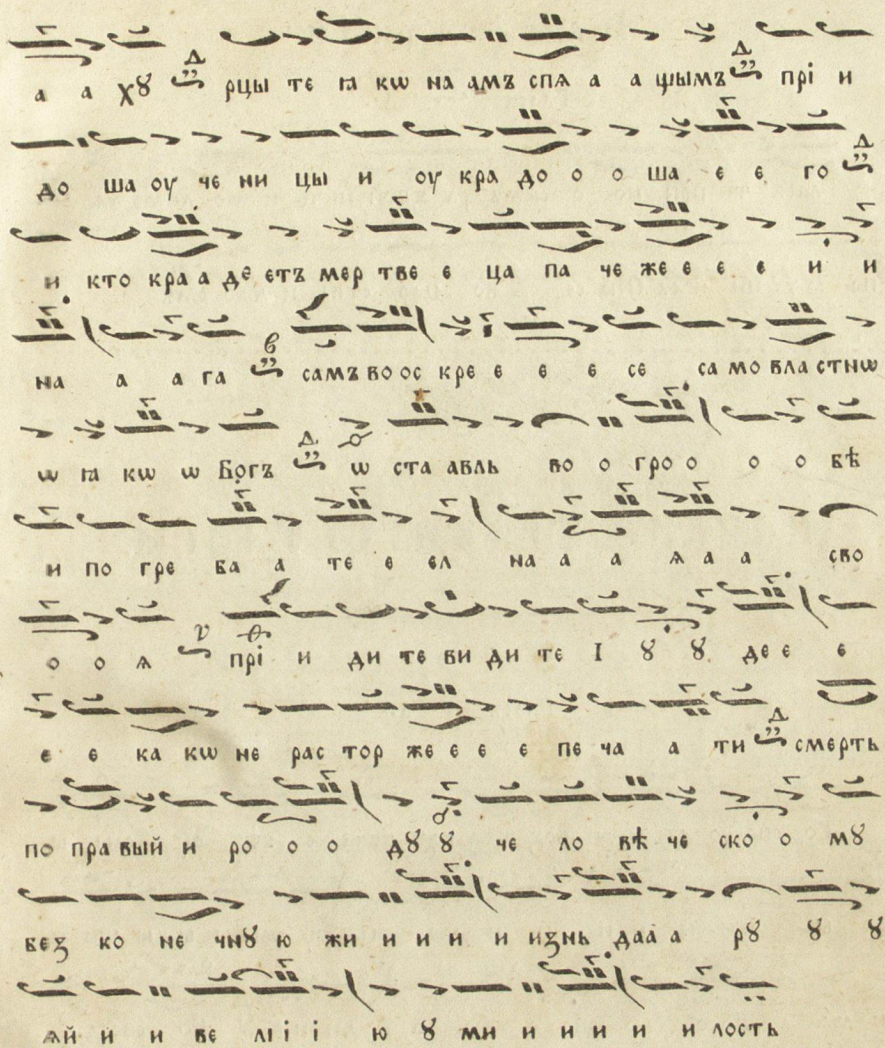 а а хꙋ рцы те ꙗ кѡ на амъ спѧ а а щымъ прі и
до ша оу че ни цы и оу кра до о о ша е е го
и кто кра а де етъ мер тве е ца па че же е е е и и
на а а га самъ во ос кре е е е се са мо вла стнѡ
ѡ ꙗ кѡ ѡ Богъ ѡ ста авль во о гро о о о бѣ
и по гре ба а те е ел на а а ѧ а а сво
о о ѧ прі и ди те ви ди те І ꙋ ꙋ де е е
е е ка кѡ не рас тор же е е е пе ча а ти смерть
по пра вый и ро о о дꙋ ꙋ че ло вѣ че ско о мꙋ
без ко не чнꙋ ю жи и и и и изнь даа а рꙋ ꙋ ꙋ
ѧй и и ве лі і і ю ꙋ ми и и и и и лость